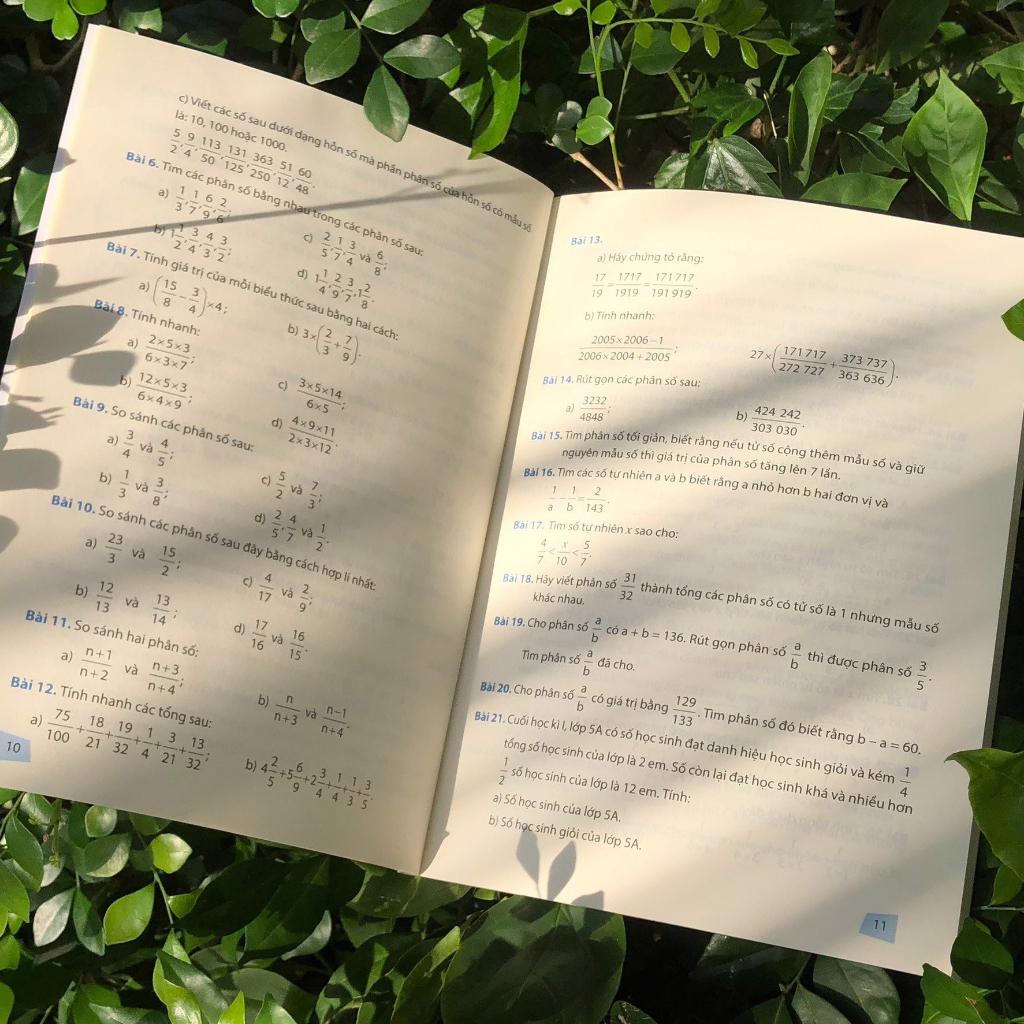 c) Viết các số sau dưới dạng hỗn số mà phần phân số của hỗn số có mẫu số
là: 10, 100 hoặc 1000.
5/2; 9/4; 113/50; 131/125; 363/250; 51/12; 60/48.
Bài 6. Tìm các phân số bằng nhau trong các phân số sau:
a) 1/3; 1/7; 6/9; 2/6;
c) 2/5; 1/7; 3/4 và 6/8;
b) 1 1/2; 3/4; 4/3; 3/2;
d) 1 1/4; 2/9; 3/7; 1 2/8.
Bài 7. Tính giá trị của mỗi biểu thức sau bằng hai cách:
a) (15/8 − 3/4) × 4;
b) 3 × (2/3 + 7/9).
Bài 8. Tính nhanh:
a) 2×5×3/6×3×7;
c) 3×5×14/6×5;
b) 12×5×3/6×4×9;
d) 4×9×11/2×3×12.
Bài 9. So sánh các phân số sau:
a) 3/4 và 4/5;
c) 5/2 và 7/3;
b) 1/3 và 3/8;
d) 2/5; 4/7 và 1/2.
Bài 10. So sánh các phân số sau đây bằng cách hợp lí nhất:
a) 23/3 và 15/2;
c) 4/17 và 2/9;
b) 12/13 và 13/14;
d) 17/16 và 16/15.
Bài 11. So sánh hai phân số:
a) n+1/n+2 và n+3/n+4;
b) n/n+3 và n−1/n+4.
Bài 12. Tính nhanh các tổng sau:
a) 75/100 + 18/21 + 19/32 + 1/4 + 3/21 + 13/32;
b) 4 2/5 + 5 6/9 + 2 3/4 + 1/4 + 1/3 + 3/5.
10
Bài 13.
a) Hãy chứng tỏ rằng:
17/19 = 1717/1919 = 171 717/191 919.
b) Tính nhanh:
2005×2006−1/2006×2004+2005;
27×(171 717/272 727 + 373 737/363 636).
Bài 14. Rút gọn các phân số sau:
a) 3232/4848;
b) 424 242/303 030.
Bài 15. Tìm phân số tối giản, biết rằng nếu tử số cộng thêm mẫu số và giữ
nguyên mẫu số thì giá trị của phân số tăng lên 7 lần.
Bài 16. Tìm các số tự nhiên a và b biết rằng a nhỏ hơn b hai đơn vị và
1/a − 1/b = 2/143.
Bài 17. Tìm số tự nhiên x sao cho:
4/7 < x/10 < 5/7.
Bài 18. Hãy viết phân số 31/32 thành tổng các phân số có tử số là 1 nhưng mẫu số
khác nhau.
Bài 19. Cho phân số a/b có a + b = 136. Rút gọn phân số a/b thì được phân số 3/5.
Tìm phân số a/b đã cho.
Bài 20. Cho phân số a/b có giá trị bằng 129/133. Tìm phân số đó biết rằng b − a = 60.
Bài 21. Cuối học kì I, lớp 5A có số học sinh đạt danh hiệu học sinh giỏi và kém 1/4
tổng số học sinh của lớp là 2 em. Số còn lại đạt học sinh khá và nhiều hơn
1/2 số học sinh của lớp là 12 em. Tính:
a) Số học sinh của lớp 5A.
b) Số học sinh giỏi của lớp 5A.
11